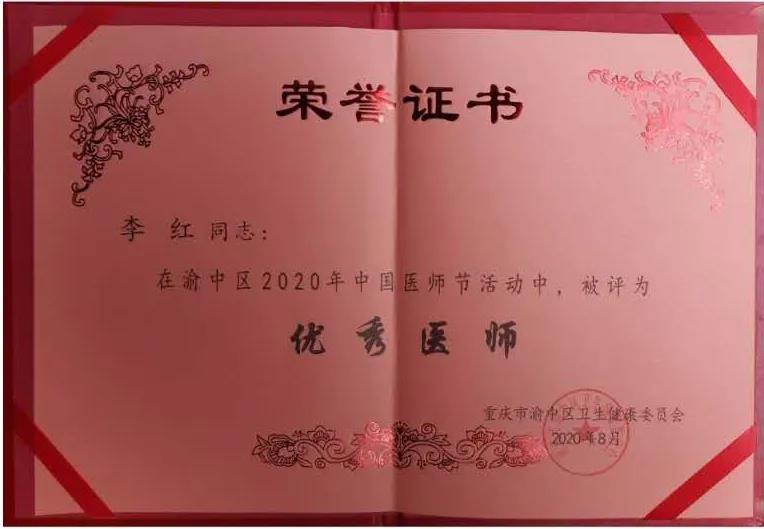 荣誉证书
李 红 同志：
在渝中区2020年中国医师节活动中，被评为
优秀医师
重庆市渝中区卫生健康委员会
2020年8月